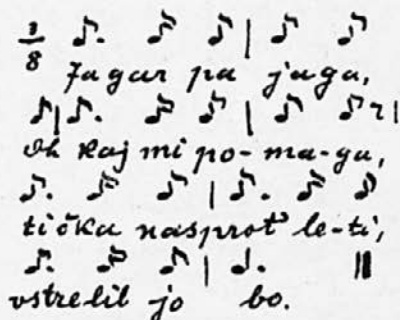 3/8
Jagar pa jaga,
Oh kaj mi po-ma-ga,
tička nasprot' le-ti,
vstrelil jo bo.